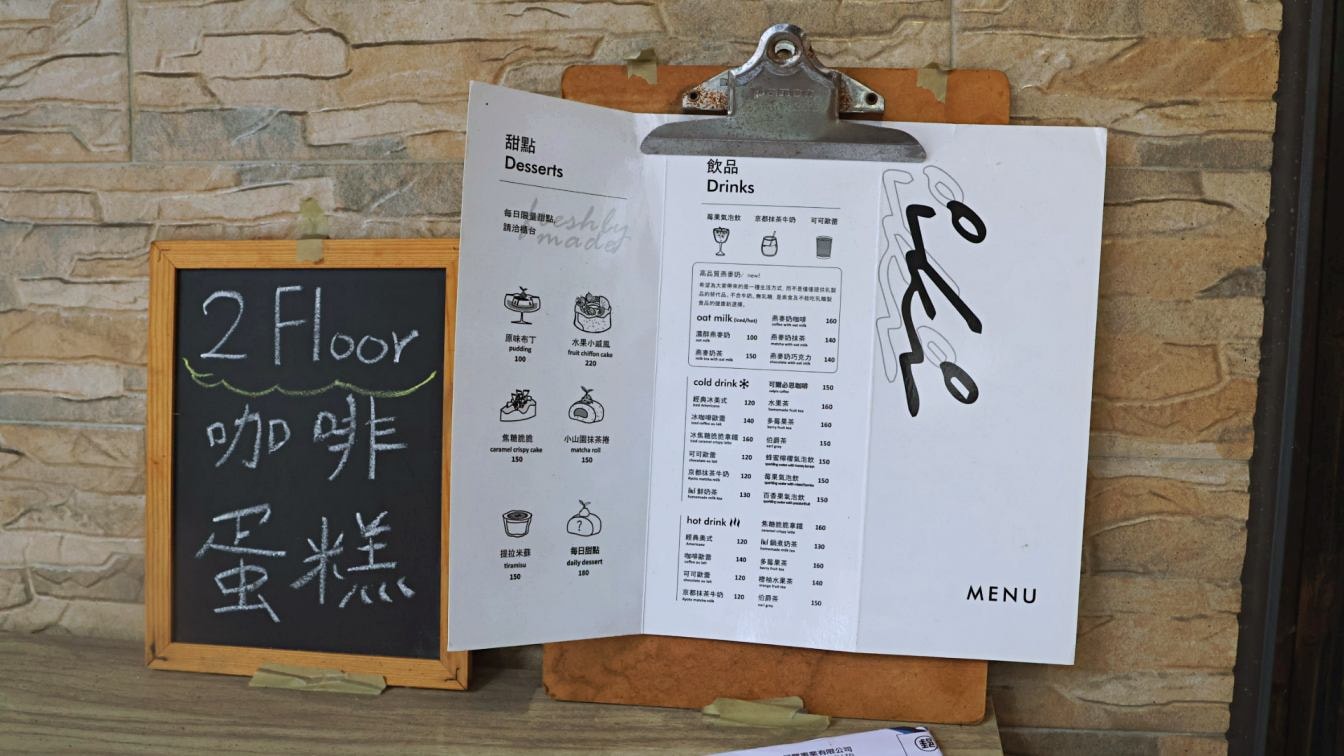 2 Floor
咖啡
蛋糕
甜點
Desserts
每日限量甜點
請洽櫃台
freshly
made
原味布丁
pudding
100
水果小戚風
fruit chiffon cake
220
焦糖脆脆
caramel crispy cake
150
小山園抹茶捲
matcha roll
150
提拉米蘇
tiramisu
150
?
每日甜點
daily dessert
180
飲品
Drinks
莓果氣泡飲
京都抹茶牛奶
可可歐蕾
高品質燕麥奶/ new!
希望為大家帶來的是一種生活方式, 而不是僅僅提供乳製
品的替代品。不含牛奶、無乳糖, 是素食及不能吃乳糖製
食品的健康新選擇。
oat milk (iced/hot)
濃醇燕麥奶 100
oat milk
燕麥奶茶 150
milk tea with oat milk
燕麥奶咖啡 160
coffee with oat milk
燕麥奶抹茶 140
matcha with oat milk
燕麥奶巧克力 140
chocolate with oat milk
cold drink
經典冰美式 120
iced Americano
冰咖啡歐蕾 140
iced coffee au lait
冰焦糖脆脆拿鐵 160
iced caramel crispy latte
可可歐蕾 120
chocolate au lait
京都抹茶牛奶 120
Kyoto matcha milk
iki 鮮奶茶 130
homemade milk tea
可爾必思咖啡 150
calpis coffee
水果茶 160
homemade fruit tea
多莓果茶 160
berry fruit tea
伯爵茶 150
earl grey
蜂蜜檸檬氣泡飲 150
莓果氣泡飲 150
百香果氣泡飲 150
hot drink
經典美式 120
Americano
咖啡歐蕾 140
coffee au lait
可可歐蕾 120
chocolate au lait
京都抹茶牛奶 120
Kyoto matcha milk
焦糖脆脆拿鐵 160
caramel crispy latte
iki 鍋煮奶茶 130
homemade milk tea
多莓果茶 160
berry fruit tea
橙柚水果茶 140
orange fruit tea
伯爵茶 150
earl grey
iki
MENU
業有限公司
郵